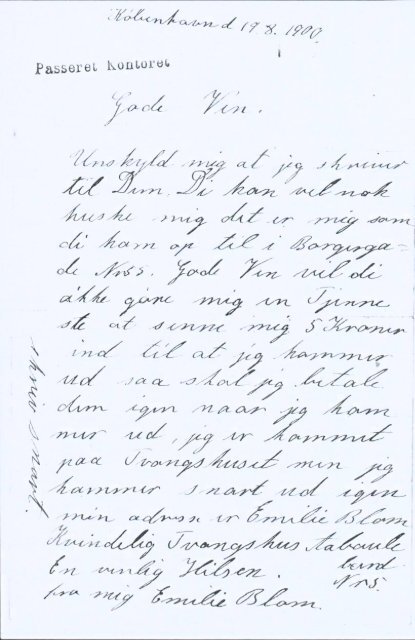 Københavnd 19.8. 1900.
Passeret Kontoret
Gode Ven.
Unskyld mig at jeg skriver
til Dem. Di kan vel nok
huske mig det er mig som
di kom op til i Borgerga-
de Nr 55. Gode Ven vel di
ikke gøre mig en Tjenne
ste at senne mig 5 Kroner
ind til at jeg kommer
ud saa skal jeg betale
dem igen naar jeg kom
mer ud, jeg er kommet
paa Tvangshuset men jeg
kommer snart ud igen
min adresse er Emilie Blom
Kvindelig Tvangshus Aabaule
bard
Nr 5.
En venlig Hilsen.
fra mig Emilie Blom.
skriv snart.